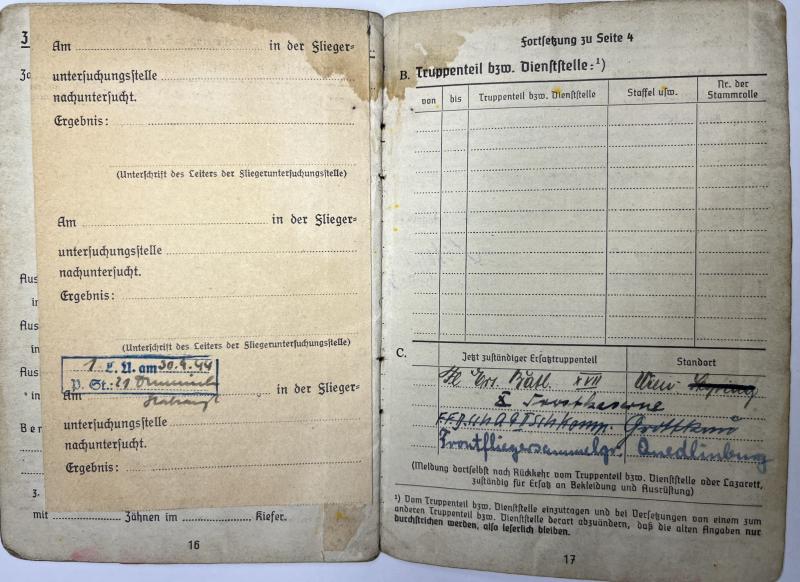 3
Za
Am in der Flieger-
untersuchungsstelle
nachuntersucht.
Ergebnis:
(Unterschrift des Leiters der Fliegeruntersuchungsstelle)
Am in der Flieger-
untersuchungsstelle
nachuntersucht.
Ergebnis:
(Unterschrift des Leiters der Fliegeruntersuchungsstelle)
Aus
in
Aus
in
Aus
in
Ber
1. L. U. am 30.4.44
P. St.: 21
Am in der Flieger-
untersuchungsstelle
nachuntersucht.
Ergebnis:
3.
mit Zähnen im Kiefer.
16
Fortsetzung zu Seite 4
B. Truppenteil bzw. Dienststelle:¹)
von bis Truppenteil bzw. Dienststelle Staffel usw. Nr. der Stammrolle
C. Jetzt zuständiger Ersatztruppenteil Standort
Fl. Ers. Batl. XVII Wien
Grottkau
Frontfliegersammelgr. Quedlinburg
(Meldung dortselbst nach Rückkehr vom Truppenteil bzw. Dienststelle oder Lazarett,
zuständig für Ersatz an Bekleidung und Ausrüstung)
¹) Vom Truppenteil bzw. Dienststelle einzutragen und bei Versetzungen von einem zum
anderen Truppenteil bzw. Dienststelle derart abzuändern, daß die alten Angaben nur
durchstrichen werden, also leserlich bleiben.
17